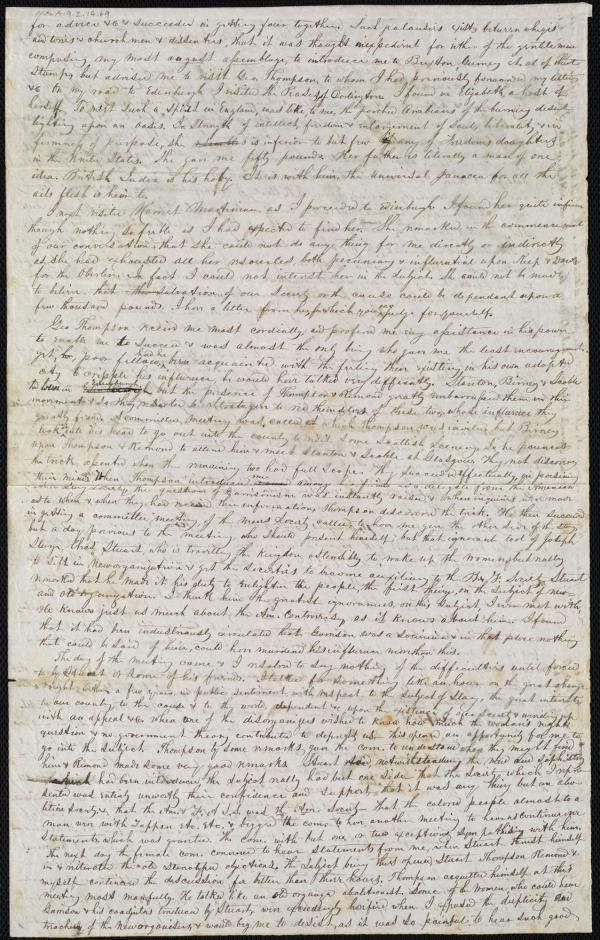 for advice &c & succeeded in getting four together. Such palaver exists between whigs
and tories & churchmen & dissenters, that it was thought inexpedient for either of the gentlemen
composing my most august assemblage, to introduce me to Buxton, Gurney &c of that
Stamp but advised me to visit Geo. Thompson, to whom I had previously forwarded my letters
&c On my road to Edinburgh I visited the Pease's of Darlington. I found in Elizabeth a host of
herself. To meet such a spirit in England, was like to me, the parched Arabians of the burning desert
lighting upon an oasis. In strength of intellect, freedom & enlargement of soul, liberality, & in
firmness of purpose, she is inferior to but few if any of Freedom's daughters
in the United States. She gave me fifty pounds. Her father is literally a man of one
idea. British India is his hoby. It is with him, the universal panacea for all the
ails flesh is heir to.
I next visited Harriet Martineau, as I proceeded to Edinburgh. I found her quite infirm
though nothing so feeble as I had expected to find her. She remarked in the commencement
of our conversation, that she could not do any thing for me directly or indirectly
as she had exhausted all her resources, both pecuniary & influential upon Keep & Dawes
for the Oberlin. In fact I could not interest her in the subject. She could not be made
to believe that the salvation of our Society or the cause could be dependant upon a
few thousand pounds. I have a letter from her, which you can judge for yourself.
Geo Thompson received me most cordially, and proffered me any assistance in his power
to enable me to succeed & was almost the only being who gave me the least encouragement.
yet, poor fellow, had he been acquainted with the feeling then existing in his own adopted
city to cripple his influence he would have talked very differently. Stanton, Birney & Scoble
had been in Edinburgh but the presence of Thompson & Remond greatly embarrassed them in their
movements & so they resorted to stratagem to rid themselves of these two, whose influence they
greatly feared. A committee meeting was called at which Thompson was invited but Birney
took into his head to go out into the country to visit some Scottish scenery. So he pounced
upon Thompson & Remond to attend him & meet Stanton & Scoble at Glasgow. They not discovering
the trick, assented when the remaining two had full scope. They succeeded effectually in poisoning
their minds. When Thompson introduced me among his friends as a delegate from the American
Anti Slavery Society the question of Garrisonism was instantly raised & when inquiries were made
as to when & where they had received their information, Thompson discovered the trick. He then succeeded
in getting a committee meeting of the men's Society called to hear me give the other side of the story
but a day previous to the meeting, who should present himself, but that ignorant tool of Joseph
Sturge, Chas Stuart, who is travelling the Kingdom, ostensibly to make up the women, but really
to sift in New-organization & get the societies to become auxiliary to the B. & F. Society. Stuart
remarked that he made it his duty to enlighten the people, the first thing, on the subject of new
and old organization. I think him the greatest ignoramus, on this subject, I ever met with.
He knows just as much about the Am. Controversy as it knows about him. I found
that it had been industriously circulated that Garrison was a Socinian & in that place nothing
that could be said of him, could have murdered his influence more than this.
The day of the meeting came & I resolved to say nothing of the difficulties until forced
to by Stuart or some of his friends. I talked for something like an hour on the great change
wrought within a few years in public sentiment, with respect to the subject of slavery, the great interests
to our country, to the cause & to the world dependent upon the existence of our Society & winding up
with an appeal &c when one of the disorganizers wished to know how much the woman's rights
question & no government theory contributed to depress us. This opened an opportunity for me to
go into the subject. Thompson by some remarks, gave the com. to understand where they might find
him & Remond made some very good remarks. Stuart rose, notwithstanding the
had been introduced the subject really had but one side. That the Society which I repre-
sented was entirely unworthy their confidence and support, that it was any thing but an abo-
lition society, that the Am. & F. A.S.S was the Am. Society. That the colored people almost to a
man were with Tappan etc. etc. & begged the com. to have another meeting to hear a continuance
statements, which was granted. The com. with but one or two exceptions, sympathised with him.
The next day the female com. convened to hear statements from me, when Stuart thrust himself
in & reiterated the old stereotyped objections. The subject being thus opened, Stuart, Thompson, Remond &
myself continued the discussion for better than three hours. Thompson acquitted himself at this
meeting most manfully. He talked like an old organized abolitionist. Some of the women, who could hear
Garrison & his coadjutors traduced by Stuart, were exceedingly horrified when I exposed the duplicity and
treachery of the new-organizers & would beg me to desist, as it was so painful to hear such good